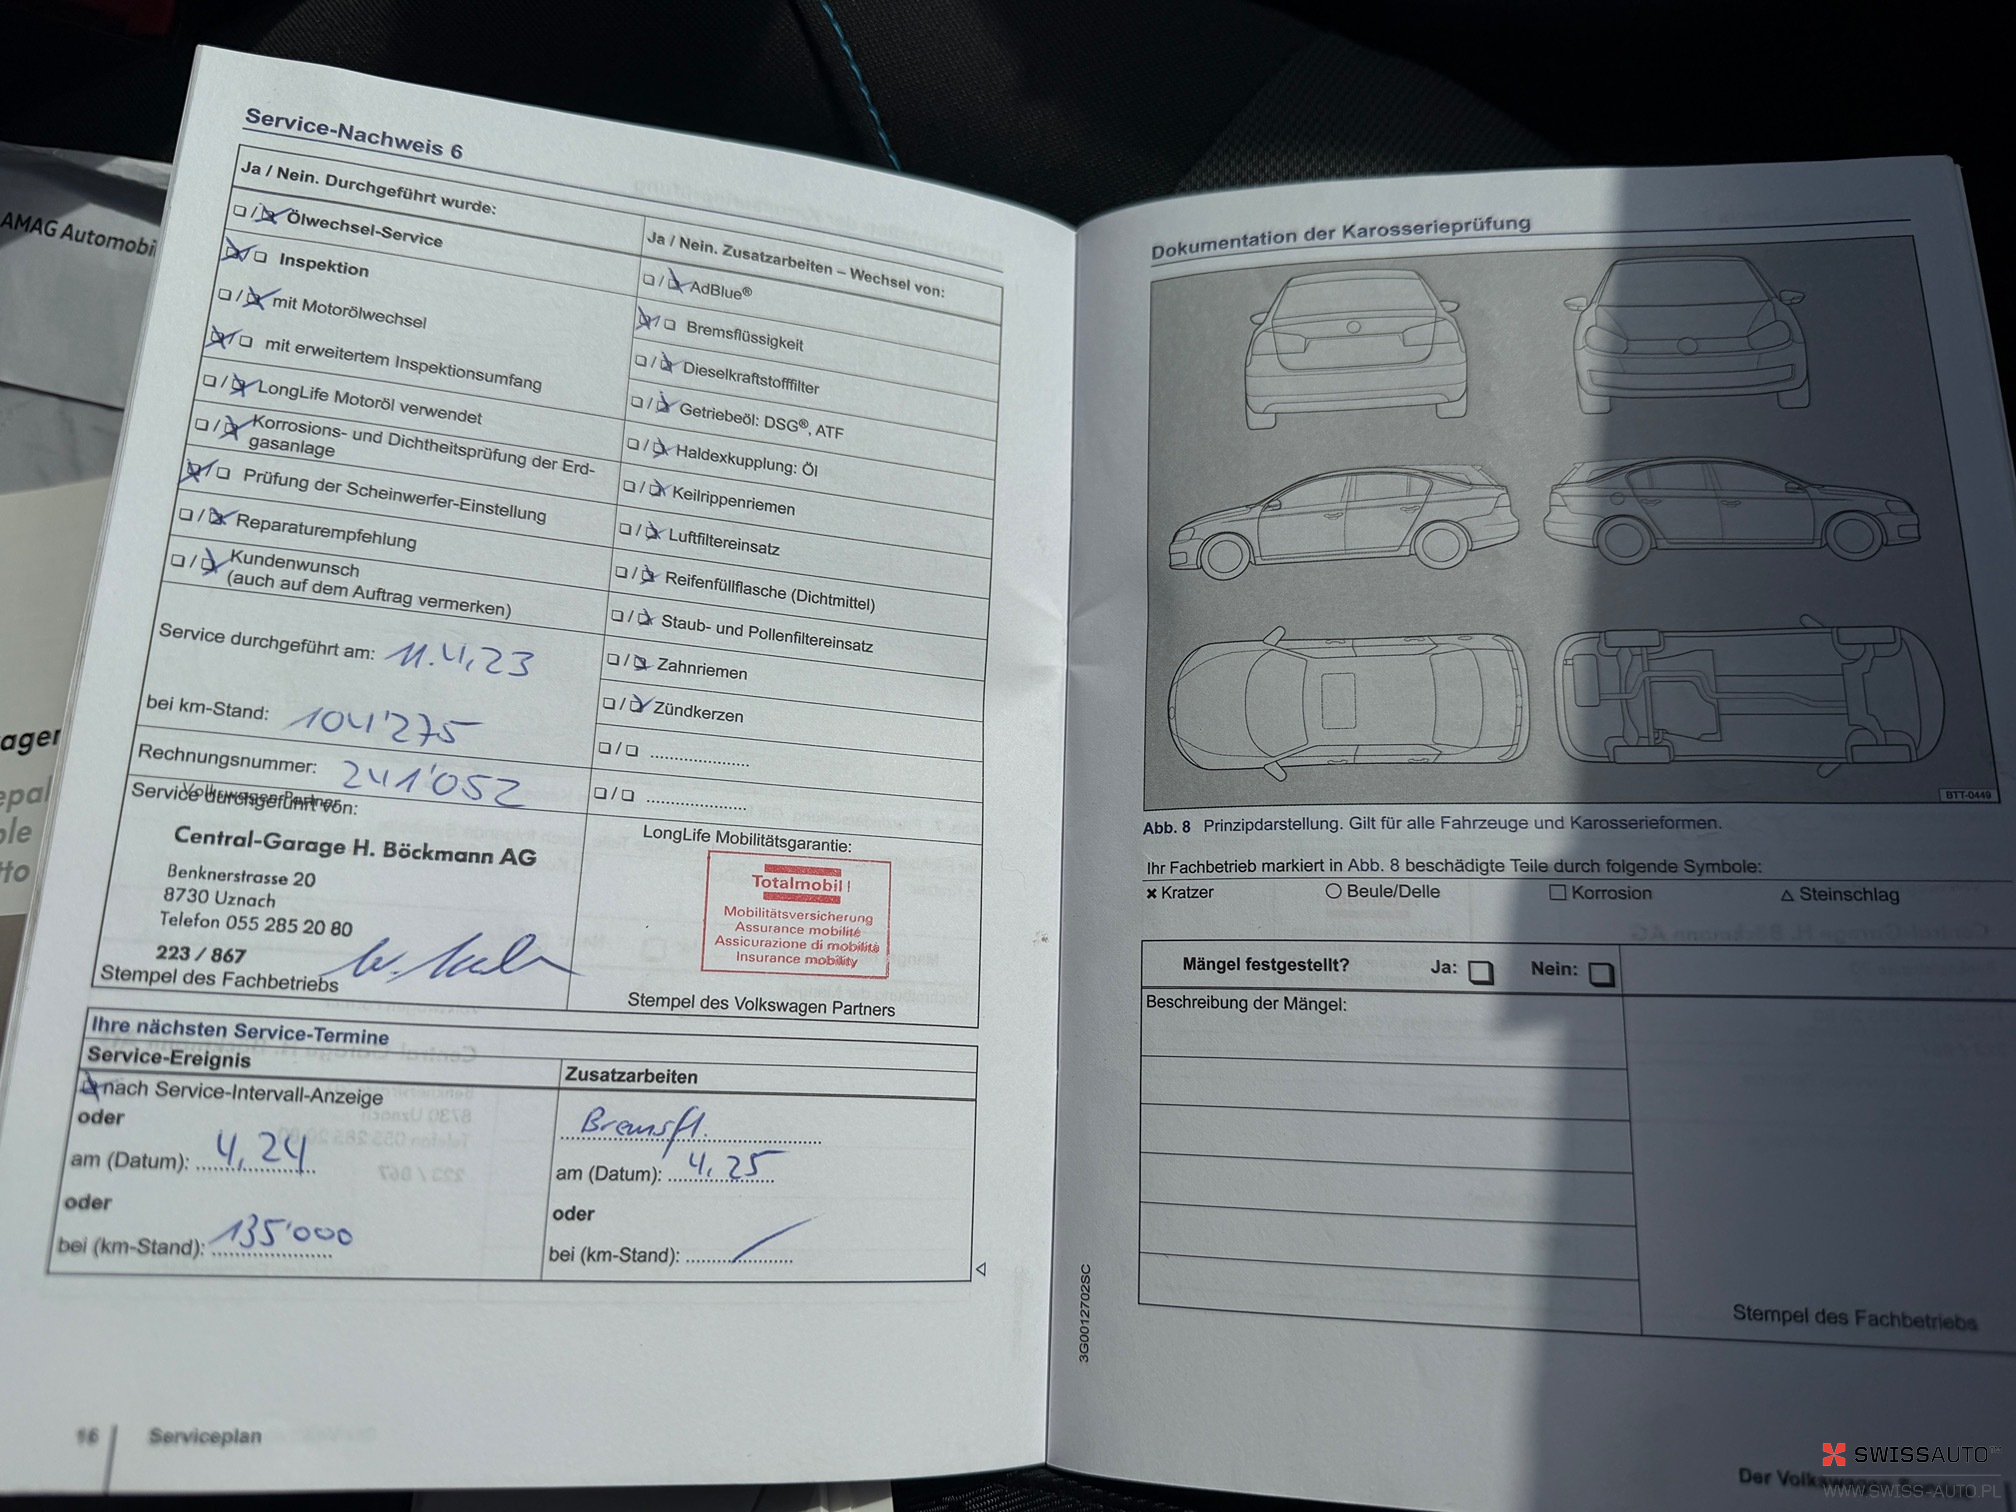 AMAG Automobi
agen
epal
ole
tto
Service-Nachweis 6
Ja / Nein. Durchgeführt wurde:
Ölwechsel-Service
Inspektion
mit Motorölwechsel
mit erweitertem Inspektionsumfang
LongLife Motoröl verwendet
Korrosions- und Dichtheitsprüfung der Erd-
gasanlage
Prüfung der Scheinwerfer-Einstellung
Reparaturempfehlung
Kundenwunsch
(auch auf dem Auftrag vermerken)
Service durchgeführt am: 11.4.23
bei km-Stand: 104'275
Rechnungsnummer: 241'052
Service durchgeführt von:
Volkswagen Partner
Central-Garage H. Böckmann AG
Benknerstrasse 20
8730 Uznach
Telefon 055 285 20 80
223 / 867
Stempel des Fachbetriebs
Ja / Nein. Zusatzarbeiten – Wechsel von:
AdBlue®
Bremsflüssigkeit
Dieselkraftstofffilter
Getriebeöl: DSG®, ATF
Haldexkupplung: Öl
Keilrippenriemen
Luftfiltereinsatz
Reifenfüllflasche (Dichtmittel)
Staub- und Pollenfiltereinsatz
Zahnriemen
Zündkerzen
LongLife Mobilitätsgarantie:
Totalmobil!
Mobilitätsversicherung
Assurance mobilité
Assicurazione di mobilità
Insurance mobility
Stempel des Volkswagen Partners
Ihre nächsten Service-Termine
Service-Ereignis
nach Service-Intervall-Anzeige
oder
am (Datum): 4.24
oder
bei (km-Stand): 135'000
Zusatzarbeiten
Bremsfl.
am (Datum): 4.25
oder
bei (km-Stand):
16 Serviceplan
Dokumentation der Karosserieprüfung
BTT-0449
Abb. 8 Prinzipdarstellung. Gilt für alle Fahrzeuge und Karosserieformen.
Ihr Fachbetrieb markiert in Abb. 8 beschädigte Teile durch folgende Symbole:
Kratzer Beule/Delle Korrosion Steinschlag
Mängel festgestellt? Ja: Nein:
Beschreibung der Mängel:
Stempel des Fachbetriebs
3G0012702SC
Der Volkswagen
SWISSAUTO
WWW.SWISS-AUTO.PL